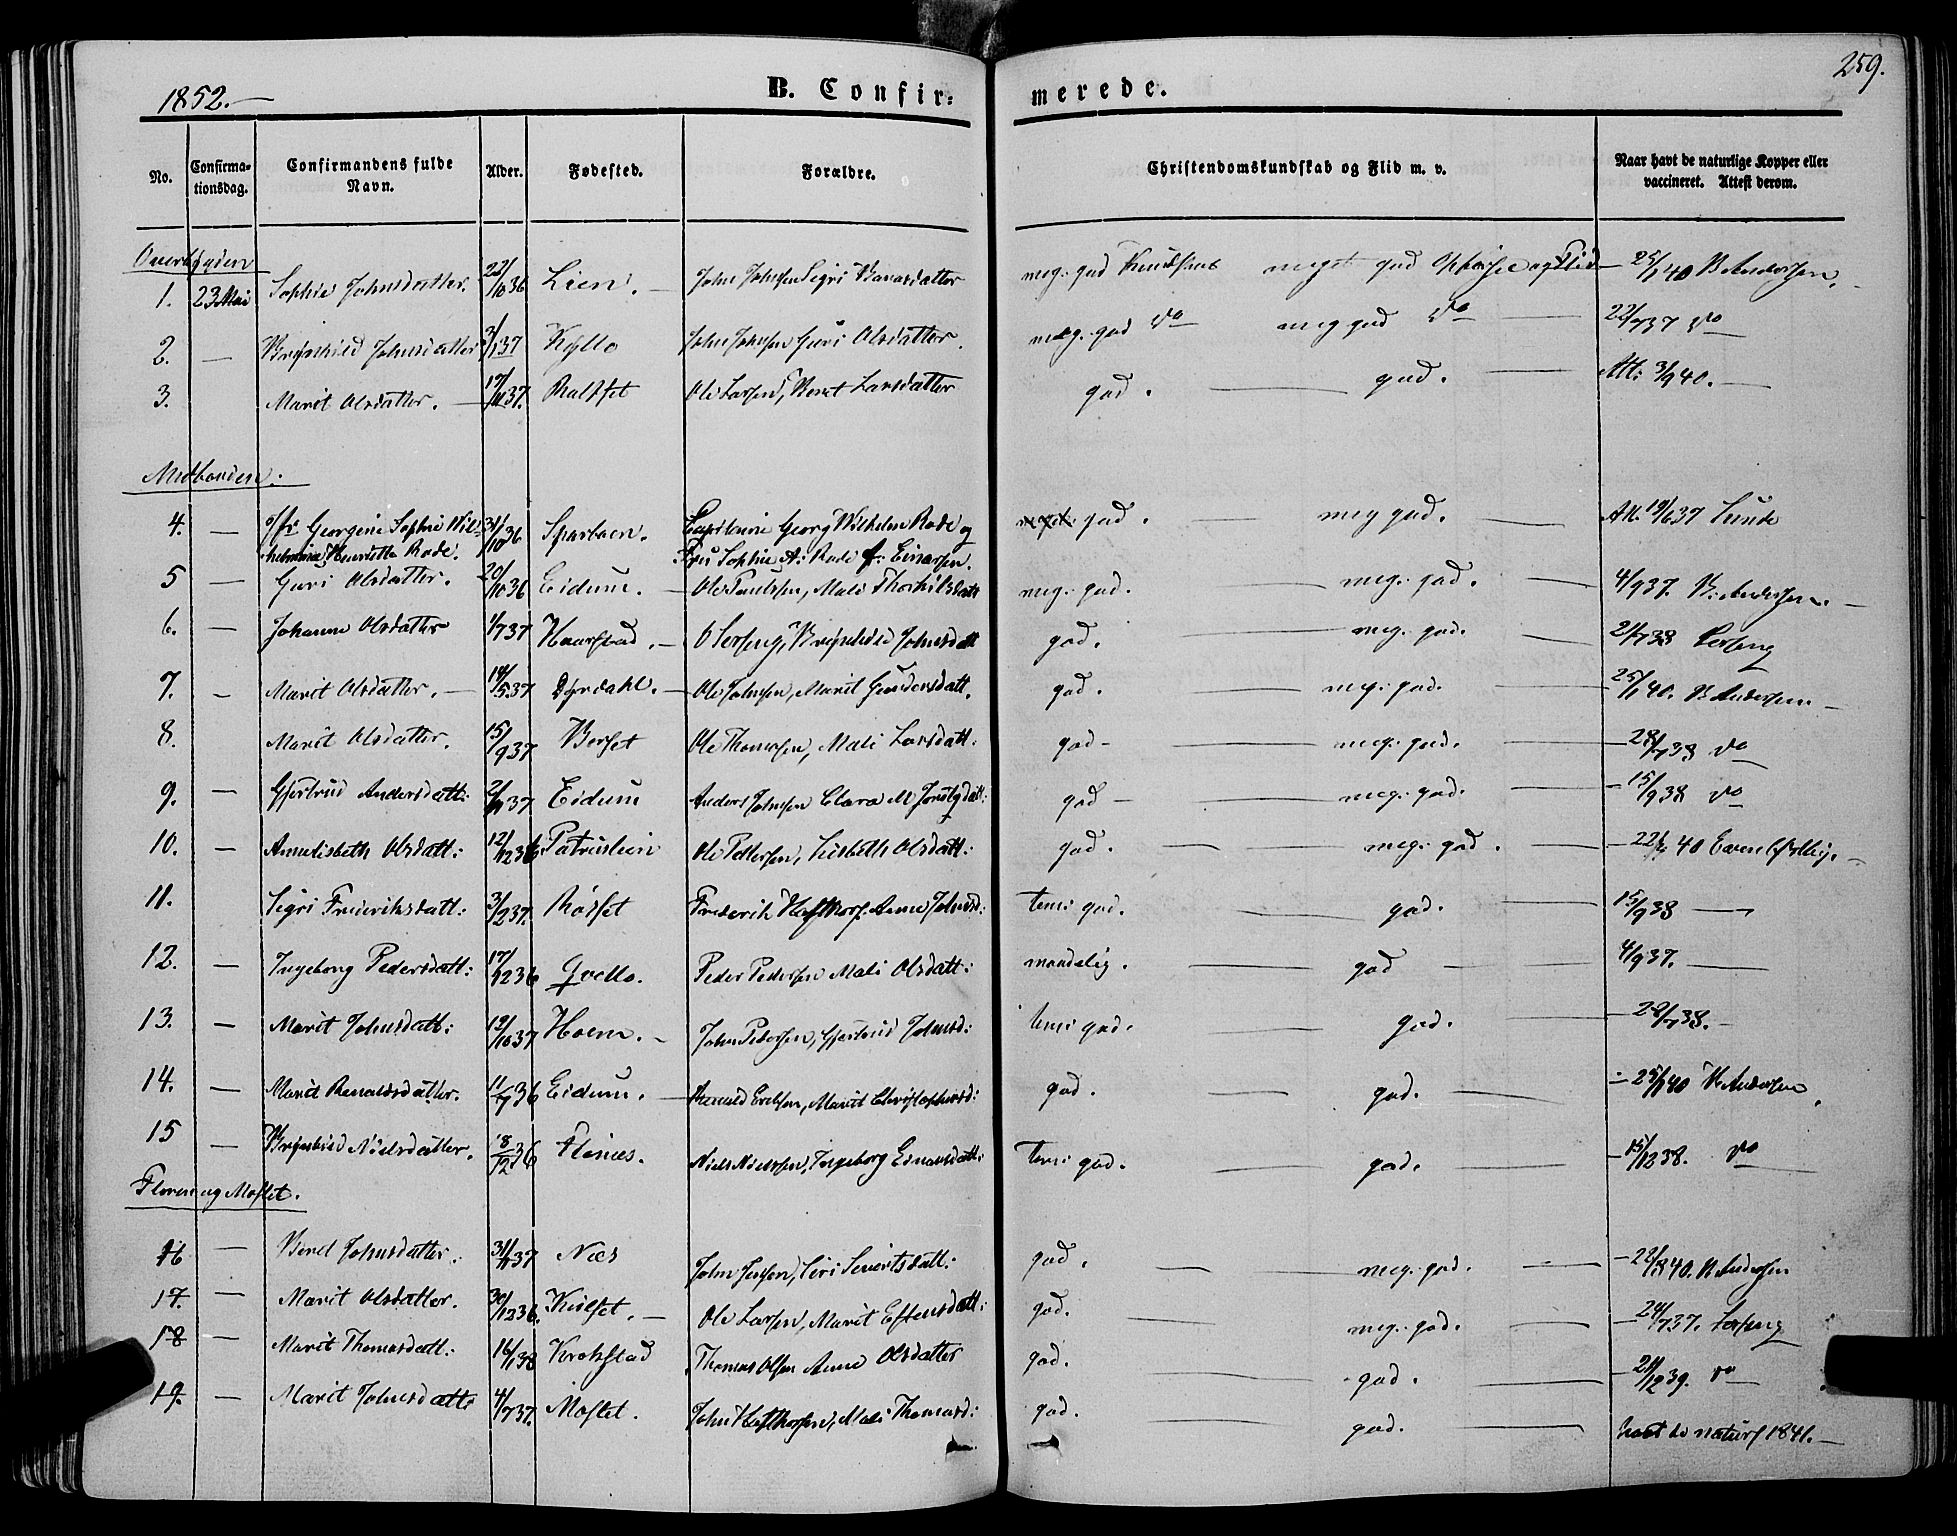 1852.
B. Confirmerede.
259.
No. Confirmationsdag. Confirmandens fulde Navn. Alder. Fødested. Forældre. Christendomskundskab og Flid m. v. Naar havt de naturlige Kopper eller vaccineret. Attest derom.
Overbygden
1. 23 Mai Sophie Johnsdatter. 22/10 36 Lien. John Johnsen Sigri meg: god Kundskab meget god Opførsel og Flid 25/1 40 B Andersen.
2. — Brynhild Johnsdatter 3/1 37 Kyllo John Johnsen Guri Olsdatter meg. god do meg god do 22/7 37 do
3. Marit Olsdatter. 17/11 37. Raltset Ole Larsen, Beret Larsdatter god. — god. — Att: 3/9 40. —
Midbonden.
4. — Georgine Sophie Wilhelmine Henriette Rode. 31/10 36 Sparboen. Capitaine Georg Wilhelm Rode og
Fru Sophie A: Rode f: Einarsen. god. — meg god. — Att. 19/6 37 Lunde
5 — Guri Olsdatter. 20/10 36 Eidum. — Ole Paulsen, Mali Thorkilsdatt meg. god. — meg: god. — 4/9 37. B. Andersen. —
6. — Johanne Olsdatter 1/7 37 Haarstad. — O Lorseng, Brynhild Johnsdatt god. — meg. god. — 21/7 38 Lorseng
7. — Marit Olsdatter. — 19/5 37 Dyrdahl. — Ole Johnsen, Marit Gundersdatt. god. — meg: god. — 25/1 40. B Andersen —
8. Marit Olsdatter. 15/9 37 Borset Ole Thomesen, Mali Larsdatt: god — meg: god. — 28/7 38 do
9. — Gjertrud Andersdatt: 2/11 37 Eidum Anders Johnsen Clara M god — meg. god. — 15/9 38 do
10. — Annelisbeth Olsdatt: 12/12 36 Patruslien Ole Pettersen, Lisbeth Olsdatt: god. — meg: god. — 22/ 40 Even
11. Sigri Frederiksdatt: 3/2 37. Røsset Frederik Hafthors: Anne Johnsd: temi god. — god. — 15/9 38 —
12. — Ingeborg Pedersdatt: 17/12 36 Qvello. Peder Pedersen Mali Olsdatt: maadelig. — god — 4/9 37. —
13. — Marit Johnsdatt: 19/10 37 Hoem. — John Pedersen, Gjertrud Johnsd: temi god. — god. — 28/7 38. —
14. — Marit Renaldsdatter. 11/9 36 Eidum. — Renald Ericksen, Marit Christophersd: god. — god. — 25/1 40 B Andersen
15 — Brynhild Nielsdatter. 18/12 36 Flenes. Niels Nielsen, Ingeborg Einarsdatt: temi god. — god. — 15/12 38. do
Floren og Mostet.
16 — Beret Johnsdatter. 31/1 37 Næs John Jensen, Siri Sivertsdatt: god. — meg. god. — 22/1 40. B Andersen
17. — Marit Olsdatter. 30/12 36. Kulset. — Ole Larsen, Marit Estensdatt: god. — meg. god. — 24/7 37. Lorseng
18 — Marit Thomasdatt: 16/1 38 Krokstad Thomas Olsen Anne Olsdatter god. — god. — 21/12 39. do
19. — Marit Johnsdatt: 4/7 37. Mostet. John Hafthorsen, Mali Thomasd: god. — god. — havt de naturl 1841. —